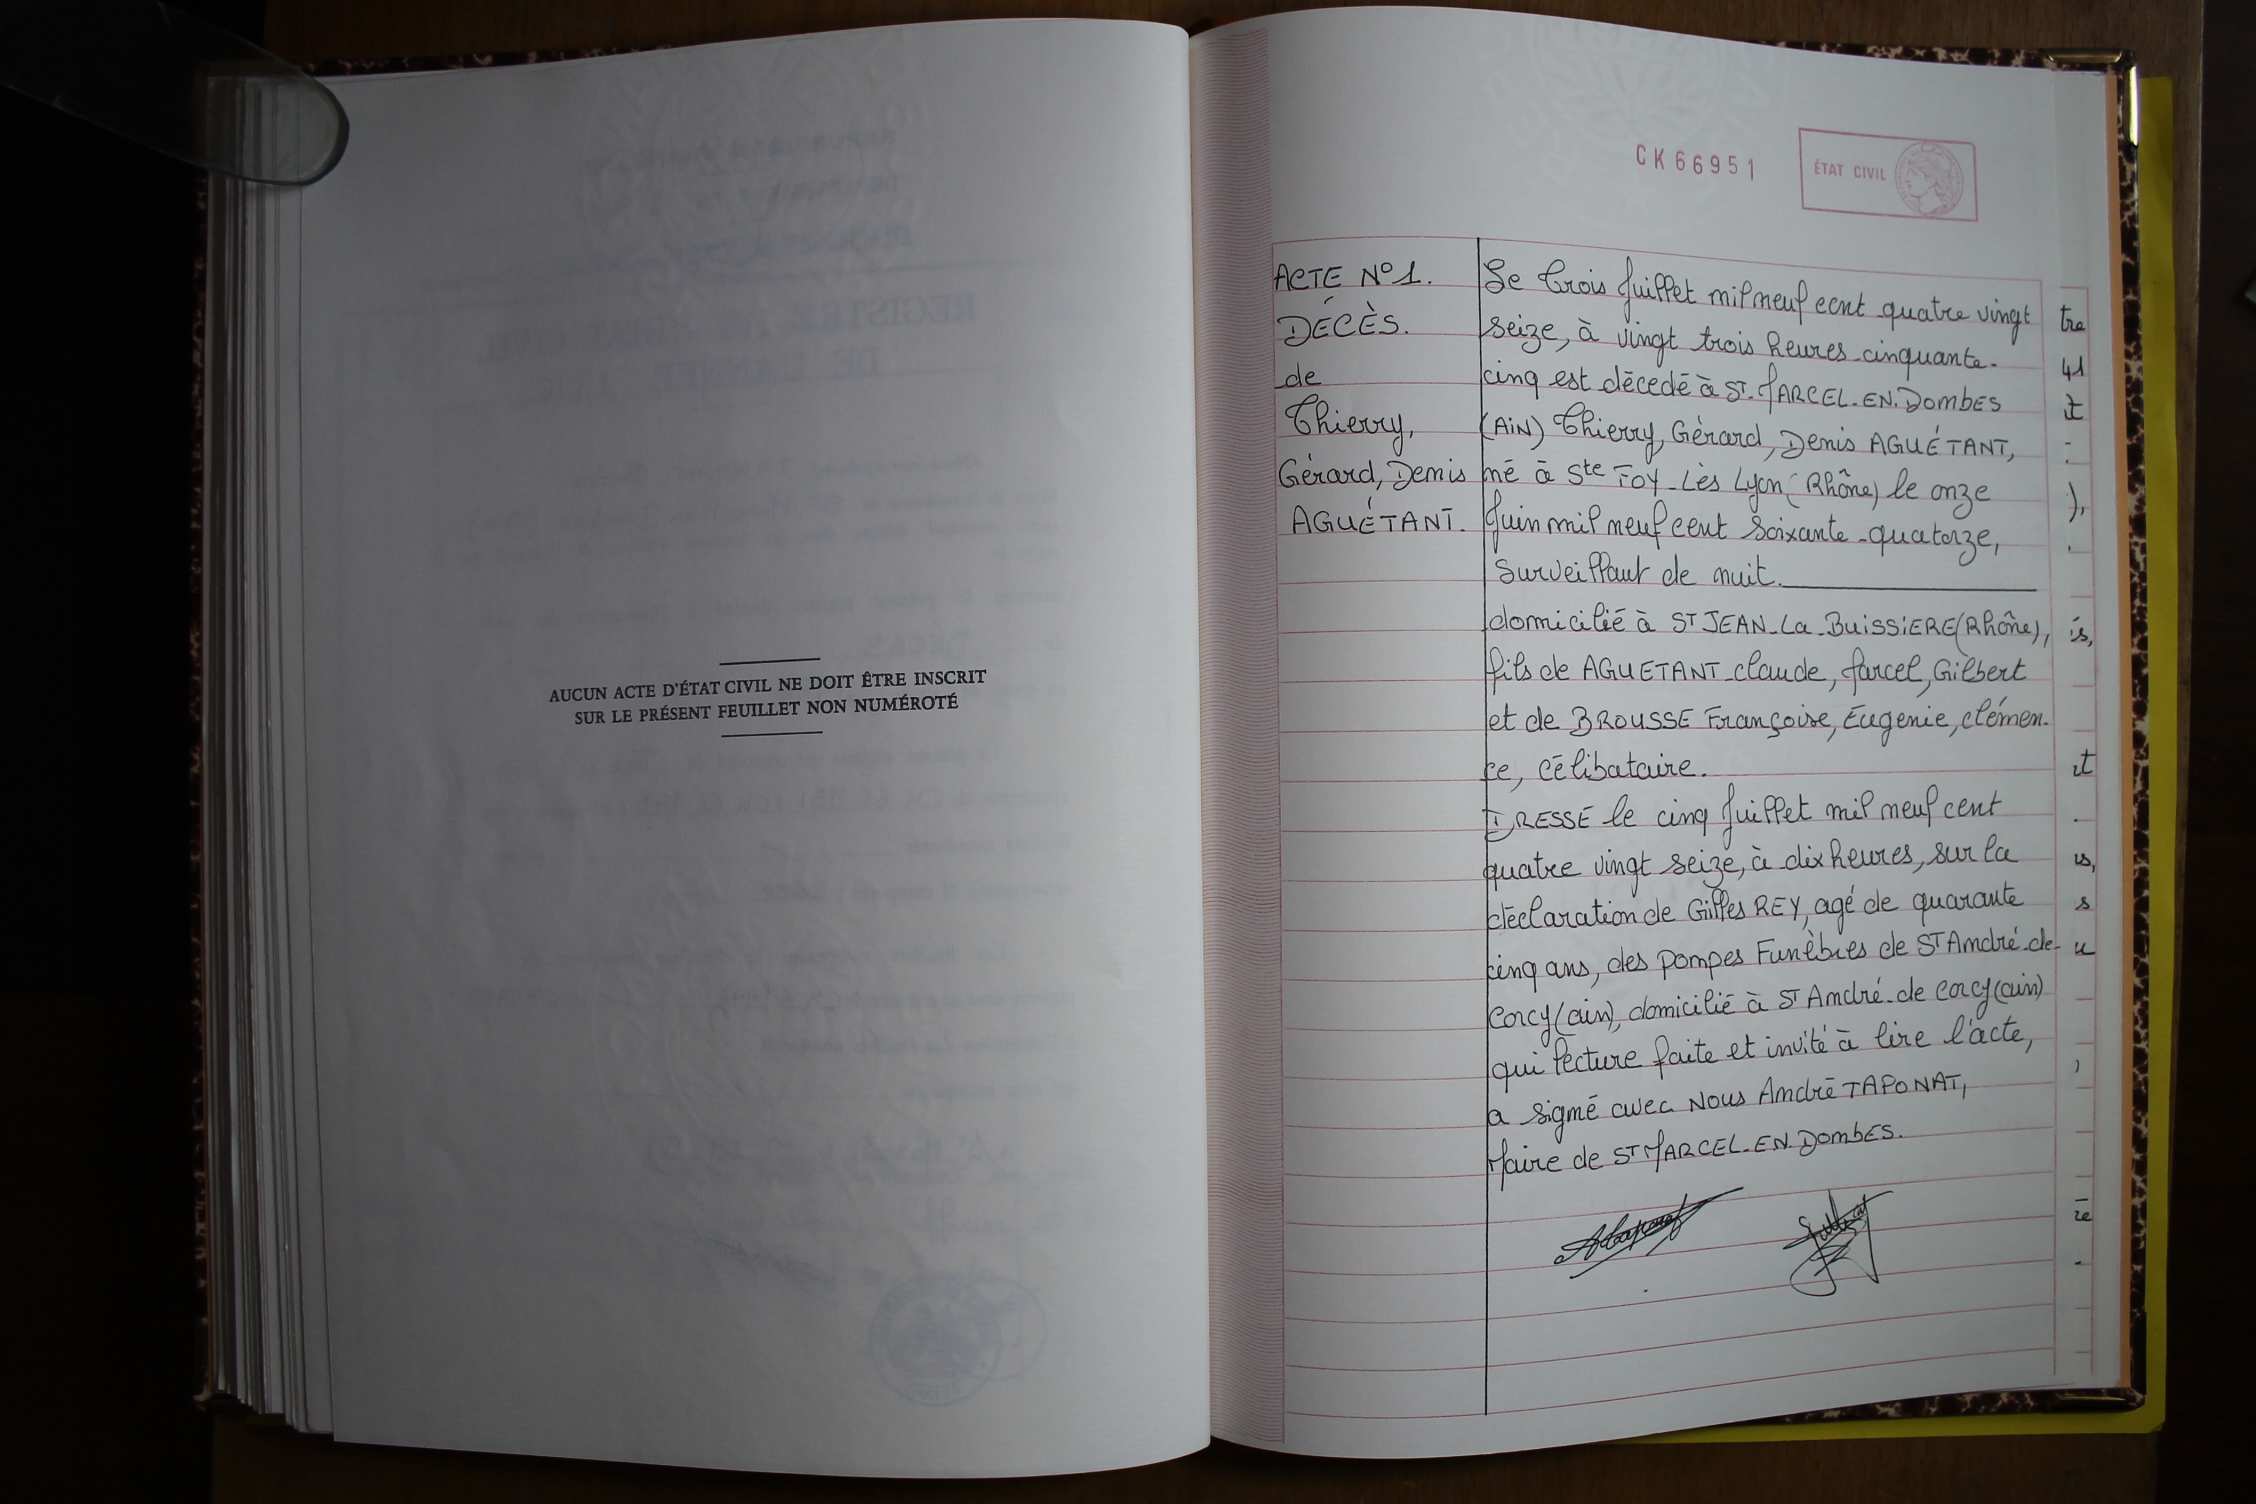 AUCUN ACTE D'ÉTAT CIVIL NE DOIT ÊTRE INSCRIT
SUR LE PRÉSENT FEUILLET NON NUMÉROTÉ
CK66951
ÉTAT CIVIL
ACTE N° 1.
DÉCÈS.
de
Thierry,
Gérard, Denis
AGUÉTANT.
Le trois Juillet mil neuf cent quatre vingt
seize, à vingt trois heures cinquante-
cinq est décédé à ST. MARCEL.EN.DombES
(AiN) Thierry, Gérard, Denis AGUÉTANT,
né à Ste FOY-Lès Lyon (Rhône) le onze
Juin mil neuf cent soixante-quatorze,
surveillant de nuit.
domicilié à ST JEAN-La-BuiSSiERE (Rhône),
fils de AGUETANT claude, Marcel, Gilbert
et de BROUSSE Françoise, Eugenie, clémen-
ce, célibataire.
DRESSÉ le cinq Juillet mil neuf cent
quatre vingt seize, à dix heures, sur la
déclaration de Gilles REY, agé de quarante
cinq ans, des pompes Funèbres de ST André-de-
Corcy (ain), domicilié à ST André-de Corcy (ain)
qui lecture faite et invité à lire l'acte,
a signé avec Nous André TAPONAT,
Maire de ST MARCEL.EN.DombES.
tre
41
it
),
is,
it
us,
s
u
,
re